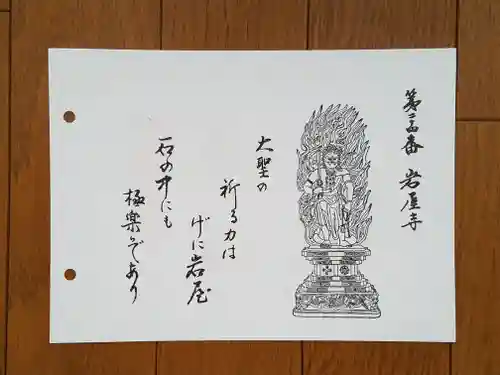 岩屋寺
大聖の
祈る力は
げに岩屋
石の中にも
極楽ぞあり